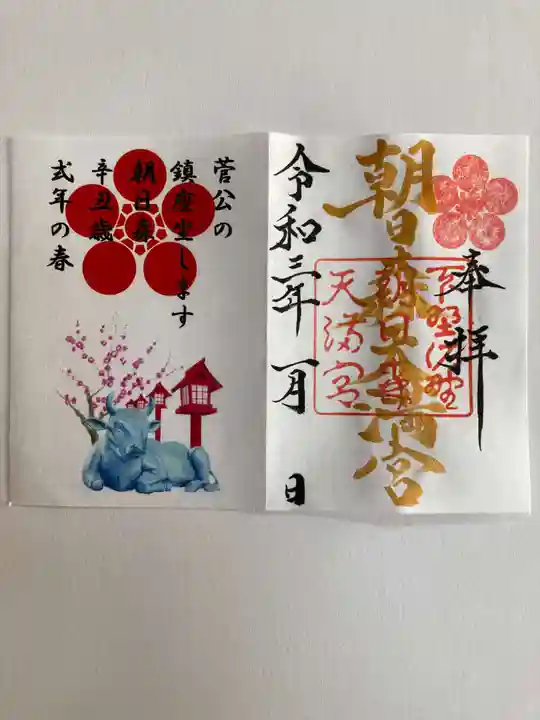 奉拝
朝日森天満宮
下野佐野
朝日森
天満宮
令和三年 一月 日
菅公の
鎮座坐します
朝日森
辛丑歳
式年の春